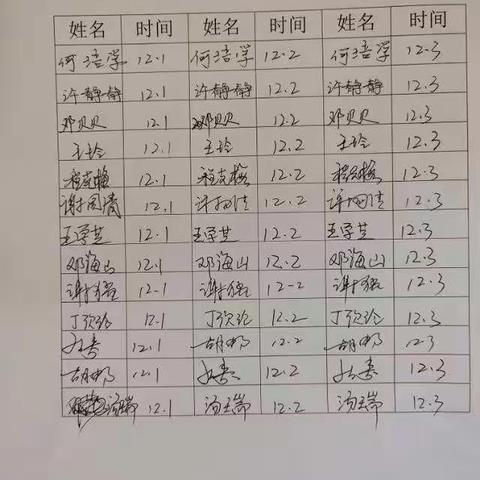 姓名 时间 姓名 时间 姓名 时间
何培学 12.1 何培学 12.2 何培学 12.3
许静静 12.1 许静静 12.2 许静静 12.3
邓贝贝 12.1 邓贝贝 12.2 邓贝贝 12.3
王玲 12.1 王玲 12.2 王玲 12.3
程克梅 12.1 程克梅 12.2 程克梅 12.3
12.1 12.2 12.3
王学芝 12.1 王学芝 12.2 王学芝 12.3
邓海山 12.1 邓海山 12.2 邓海山 12.3
谢猛 12.1 谢猛 12.2 谢猛 12.3
12.1 12.2 12.3
12.1 胡邦 12.2 胡邦 12.3
胡邦 12.1 12.2 12.3
汤瑞 12.1 汤瑞 12.2 汤瑞 12.3